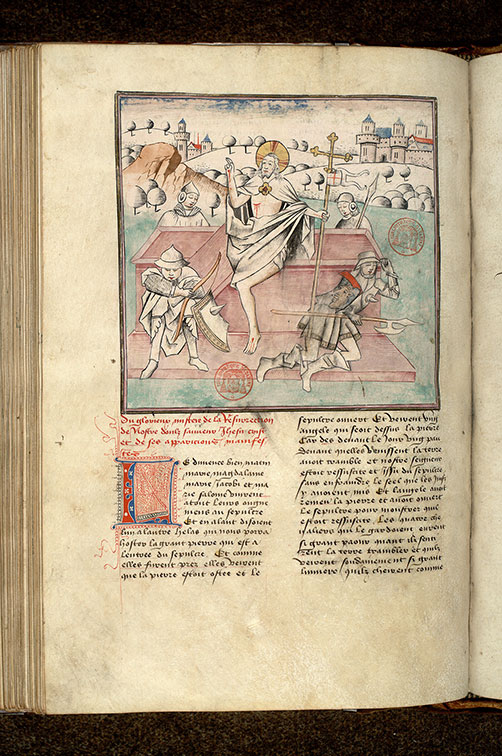 Du glorieux mistere de la Resurrection
de nostre doulz sauveur Jhesucrist
et de ses apparicions manifes
tees
Le dimence bien matin
marie magdalaine
marie Jacobi et ma
rie salome vinrent
atout leurs oingne
mens au sepulcre
Et en alant disoient
lun a lautre helas qui nous porra
hoster la grant pierre qui est a
lentree du sepulcre Et comme
elles furent prez elles veirent
que la pierre estoit ostee et le
sepulcre ouvert Et veirent ung
angle qui seoit dessus la pierre
Car des devant le Jour ung pau
devant quelles venissent la terre
avoit tramble et nostre seigneur
estoit ressuscite et issu du sepulcre
sans enfraindre le seel que les Juifs
y avoient mis Et langle avoit
remeu la pierre et avoit ouvert
le sepulcre pour monstrer quil
estoit ressuscite Les quatre che
valiers qui le gardoient eurent
si grant paour quant ilz sen
tirent la terre trambler et quilz
veirent soudainement si grant
lumiere quilz cheirent comme